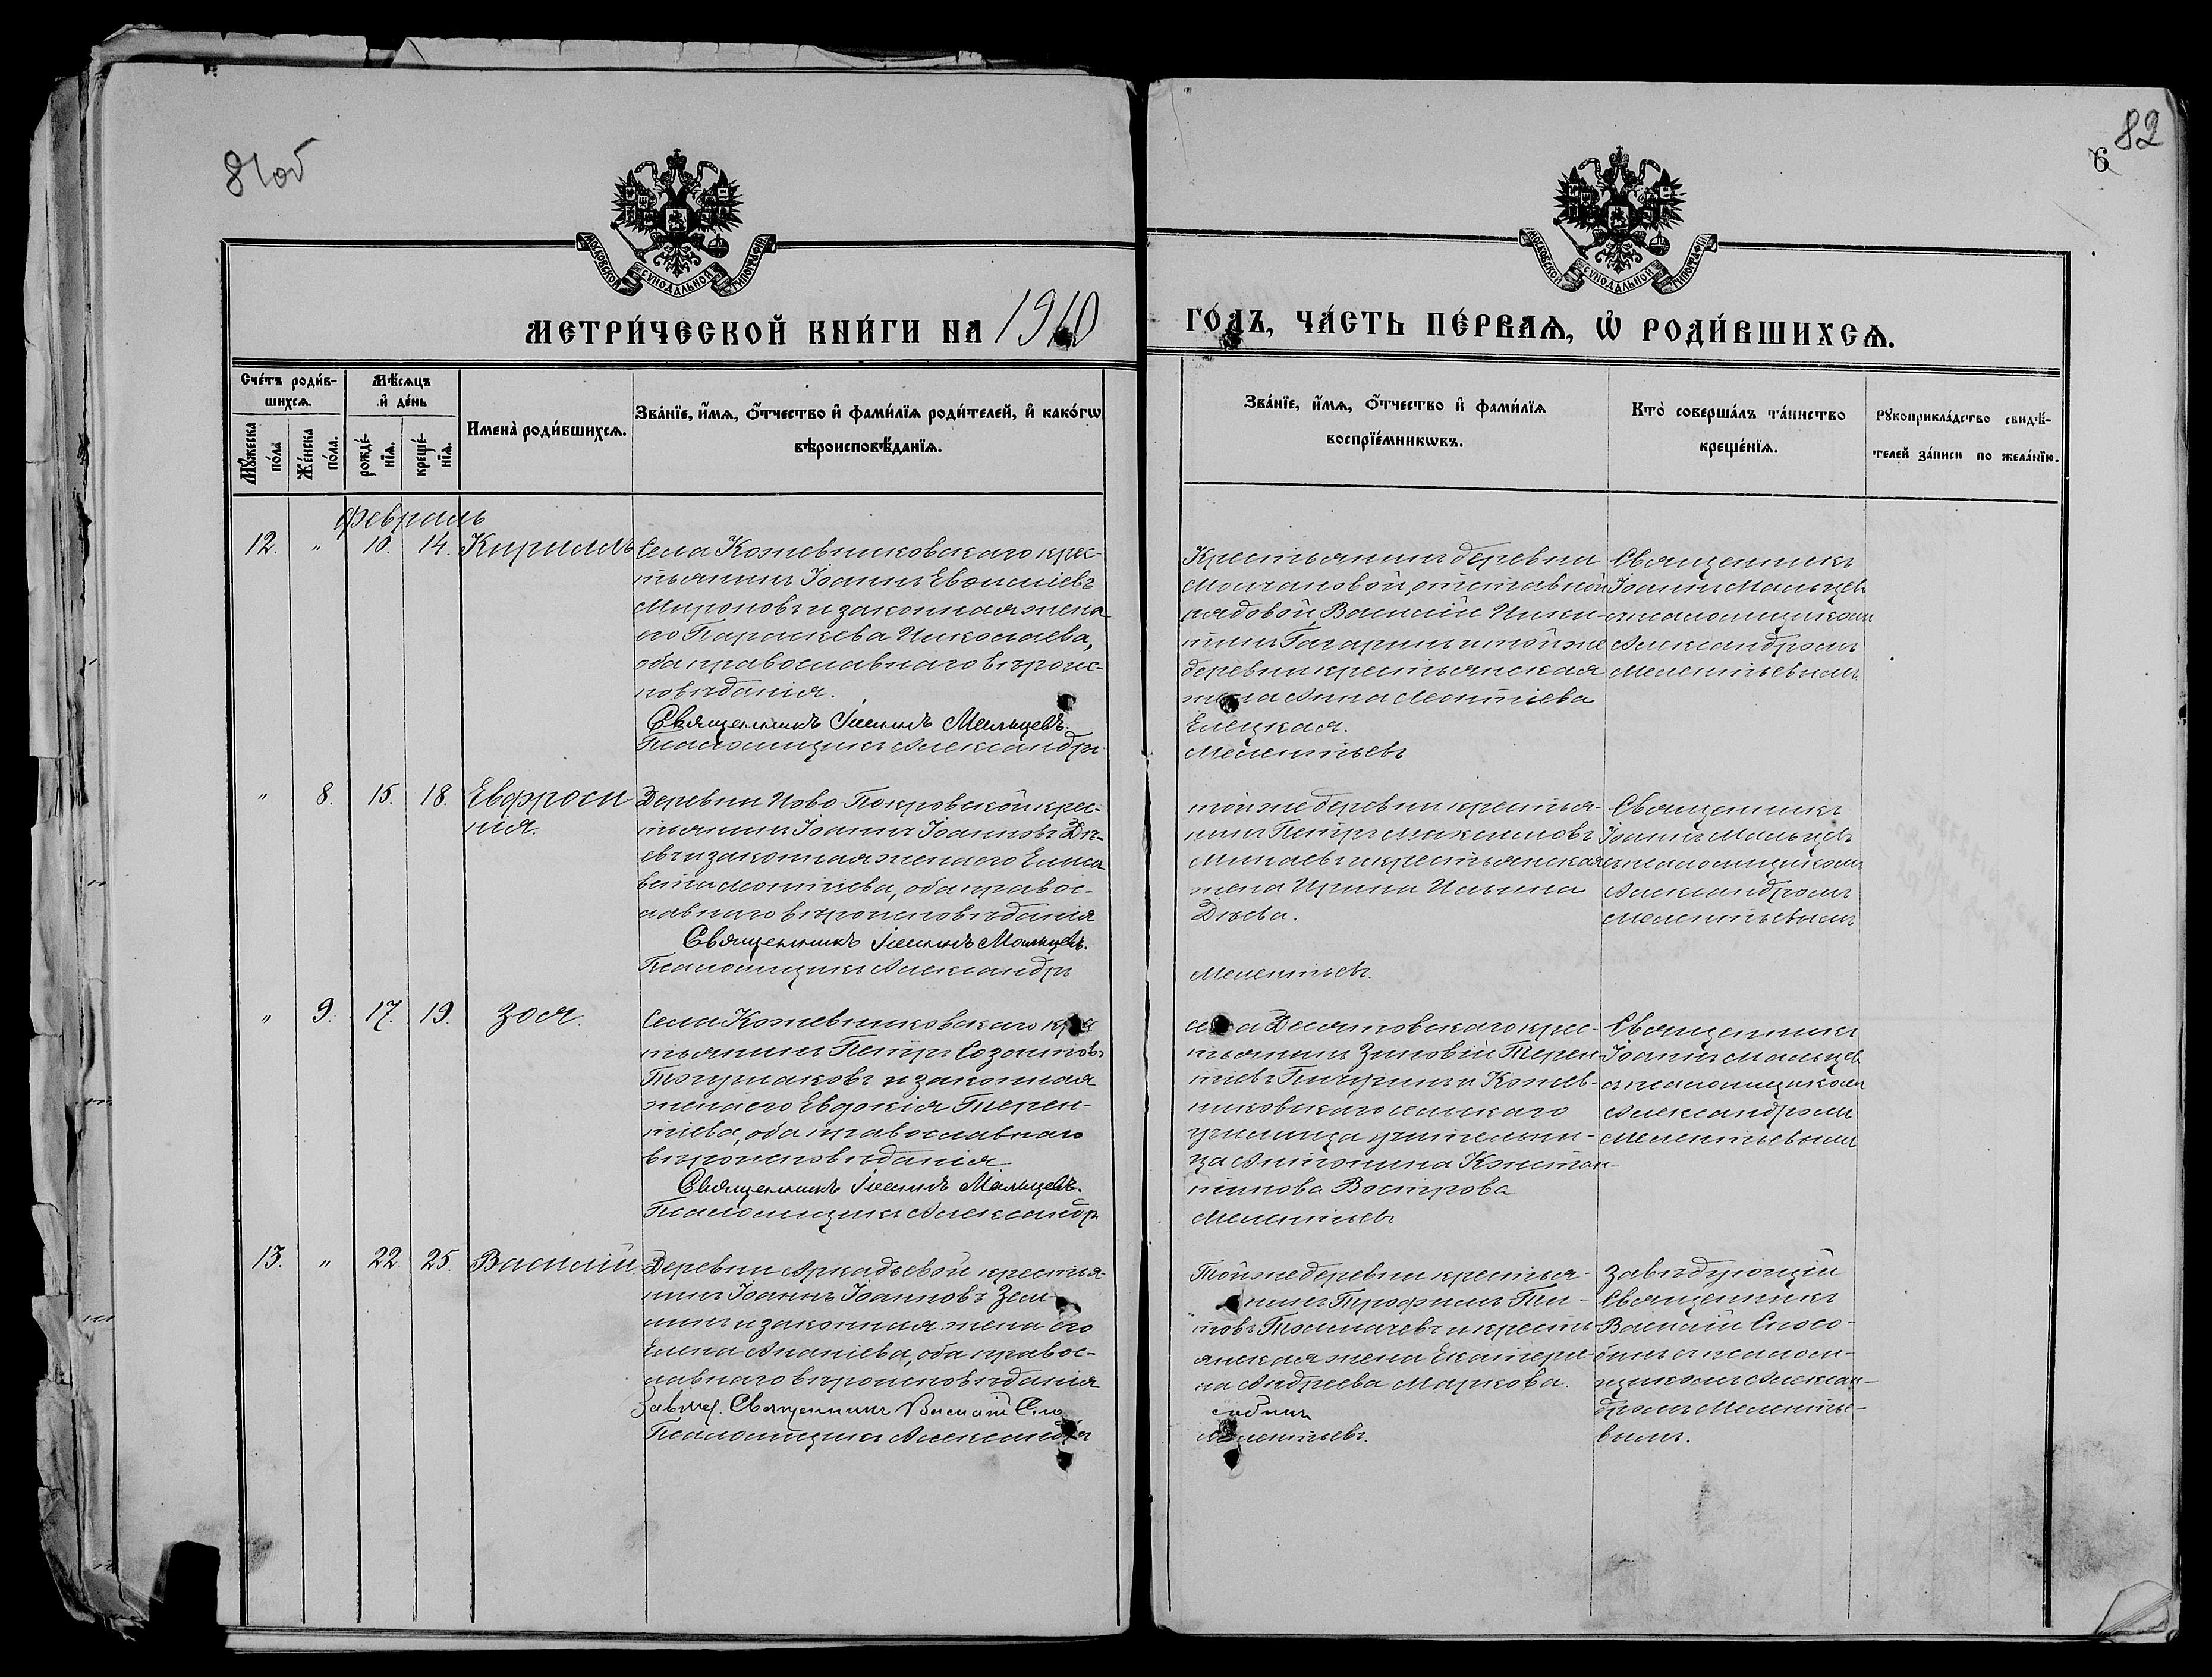 81об
82
6
МОСКОВСКОЙ СѴНОДАЛЬНОЙ ТИПОГРАФІИ
МОСКОВСКОЙ СѴНОДАЛЬНОЙ ТИПОГРАФІИ
МЕТРИ́ЧЕСКОЙ КНИ́ГИ НА 1910
ГО́ДЪ, ЧА́СТЬ ПЕ́РВАѦ, Ѡ҆ РОДИ́ВШИХСѦ.
Сче́тъ роди́в-
шихсѧ.
Мꙋ́жеска
по́ла
Же́нска
по́ла.
Мѣ́сѧцъ
и҆ де́нь
рожде́-
нїѧ.
креще́-
нїѧ.
Имена̀ роди́вшихсѧ.
Зва́нїе, и҆́мѧ, ѻ҆́тчество и҆ фами́лїѧ роди́телей, и҆ како́гѡ
вѣроисповѣ́данїѧ.
Зва́нїе, и҆́мѧ, ѻ҆́тчество и҆ фами́лїѧ
воспрїе́мникѡвъ.
Кто̀ соверша́лъ та́инство
креще́нїѧ.
Рꙋкоприкла́дство свидѣ́-
телей за́писи по жела́нїю.
Февраль
12. " 10. 14. Кириллъ
Села Кожевниковскаго крес-
тьянинъ Іоаннъ
Мироновъ и законная жена
его Параскева Николаева,
оба православнаго вѣроис-
повѣданія.
Священникъ Іоаннъ Мальцевъ.
Псаломщикъ Александръ
Крестьянинъ деревни
Молчановой, отставной
рядовой Василій Ники-
тинъ Гагаринъ и той же
деревни крестьянская
жена Анна Леонтіева
Елецкая.
Мелентьевъ
Священникъ
Іоаннъ Мальцевъ
съ псаломщикомъ
Александромъ
Мелентьевымъ
" 8. 15. 18. Евфроси
нія.
Деревни Ново Покровской крес-
тьянинъ Іоаннъ Іоанновъ Дѣ-
евъ и законная жена его Елиса
вета Леонтіева, оба правос-
лавнаго вѣроисповѣданія
Священникъ Іоаннъ Мальцевъ.
Псаломщикъ Александръ
той же деревни крестья-
нинъ Петръ Максимовъ
Минаевъ и крестьянская
жена Ирина Ильина
Дѣева.
Мелентьевъ.
Священникъ
Іоаннъ Мальцевъ
съ псаломщикомъ
Александромъ
Мелентьевымъ
" 9. 17. 19. Зоя.
Села Кожевниковскаго кре
тьянинъ Петръ Созонтовъ
и законная
жена его Евдокія Терен-
тіева, оба православнаго
вѣроисповѣданія.
Священникъ Іоаннъ Мальцевъ.
Псаломщикъ Александръ
села Десятовскаго крес-
тьянинъ Зиновій Терен-
тіевъ Пичугинъ и Кожев-
никовскаго сельскаго
училища учительни-
ца Антонина Констан-
тинова Вострова
Мелентьевъ
Священникъ
Іоаннъ Мальцевъ
съ псаломщикомъ
Александромъ
Мелентьевымъ
13. " 22. 25. Василій.
Деревни Аркадьевой крестья-
нинъ Іоаннъ Іоанновъ Зем-
нинъ и законная жена его
Елена Ананіева, оба правос-
лавнаго вѣроисповѣданія
Завѣд. Священникъ Василій Сло
Псаломщикъ Александръ
Той же деревни крестья-
нинъ Ти-
товъ Толмачевъ и кресть-
янская жена Екатери-
на Андреева Маркова.
Мелентьевъ.
Завѣдующій
Священникъ
Василій Слосо-
съ псалом-
щикомъ Алексан-
дромъ Мелентье-
вымъ.